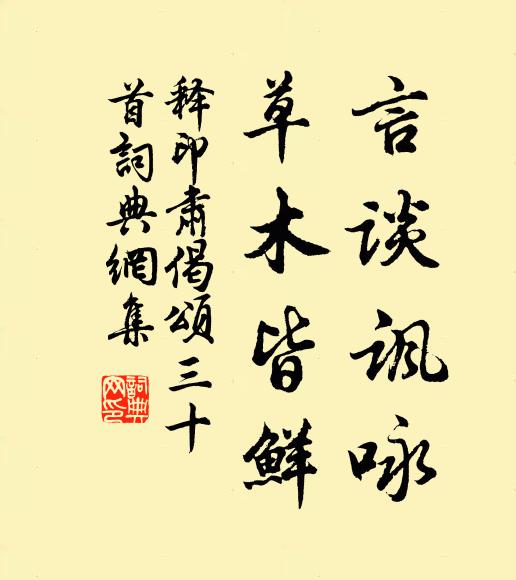 言谈讽咏
草木皆鲜
释印肃偈颂三十
首詞典網集
詞典
网印